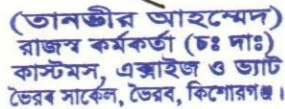 (তানজীর আহম্মেদ)
রাজস্ব কর্মকর্তা (চঃ দাঃ)
কাস্টমস, এক্সাইজ ও ভ্যাট
ভৈরব সার্কেল, ভৈরব, কিশোরগঞ্জ।